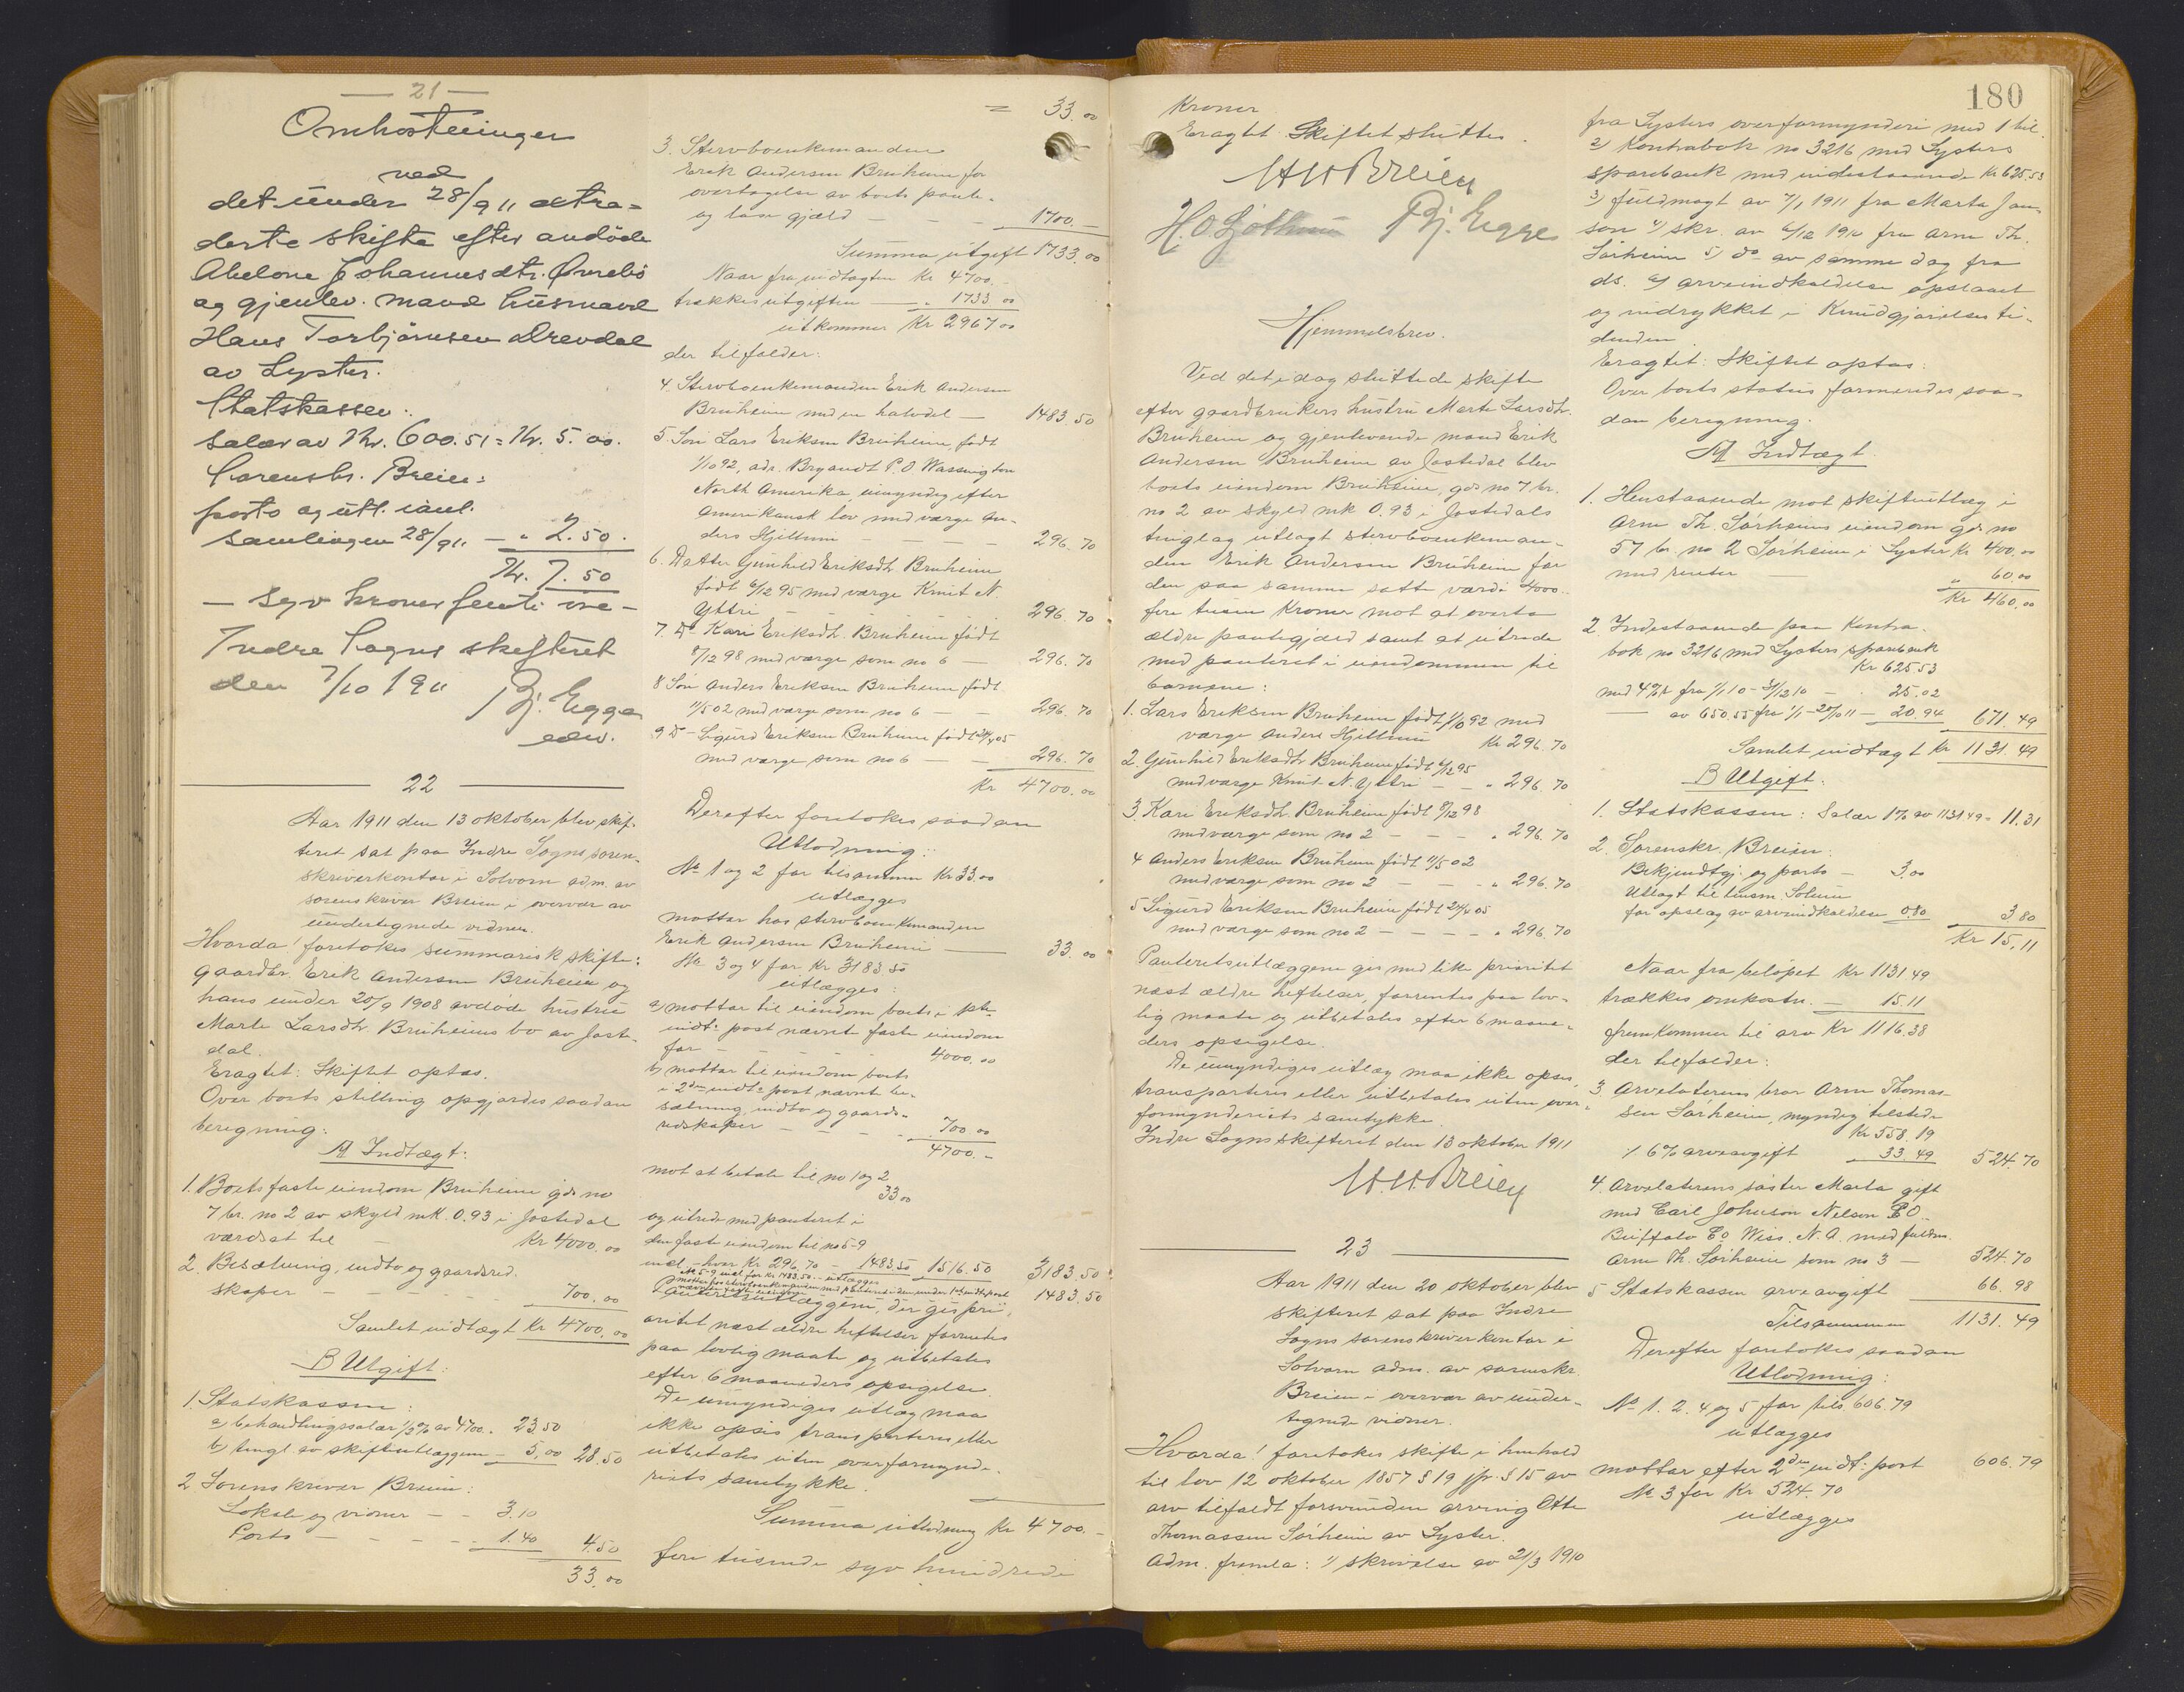 — 21 —
Omkostninger
ved
det under 28/9 11 extra-
derte skifte efter avdöde
Abelone Johannesdtr. Øvrebö
og gjenlev. mand husmand
Hans Torbjörnsen Drevdal
av Lyster.
Statskassen:
Salær av Kr. 600.51 = Kr. 5.00.
Sorenskr. Breien:
porto og utl. ianl.
samlingen 28/9 11 — " 2.50.
Kr. 7.50
— syv kroner femti öre —
Indre Sogns skifteret
den 7/10 1911
Bj. Egge
edsv.
— 22 —
Aar 1911 den 13 oktober blev skif-
teret sat paa Indre Sogns soren-
skriverkontor i Solvorn adm. av
sorenskriver Breien i overvær av
undertegnede vidner.
Hvorda! foretokes summarisk skifte:
gaardbr. Erik Andersen Bruheim og
hans under 20/9 1908 avdöde hustru
Marte Larsdtr. Bruheims bo av Joste-
dal.
Eragtet: Skiftet optas.
Over boets stilling opgjördes saadan
beregning:
A Indtægt:
1. Boets faste eiendom Bruheim gds no
7 br. no 2 av skyld mk. 0.93 i Jostedal
værdsat til — Kr 4000.00
2. Besætning, indbo og gaardsred-
skaper — — — — 700.00
Samlet indtægt Kr 4700.00
B Utgift:
1. Statskassen:
a) behandlingssalær 1/2% av 4700. 23.50
b) tingl. av skifteutlæggene — 5.00 28.50
2 Sorenskriver Breien:
Lokale og vidner — — 3.10
Porto — — — — 1.40 4.50
33.00
= 33.00
3. Stervboenkemanden
Erik Andersen Bruheim for
overtagelse av boets pante-
og løse gjæld — — — 1700.—
Summa utgift 1733.00
Naar fra indtægten Kr 4700.—
trækkes utgiften — " 1733.00
utkommer Kr 2967.00
der tilfalder:
4. Stervboenkemanden Erik Andersen
Bruheim med en halvdel — 1483.50
5. Søn Lars Eriksen Bruheim, født
1/10 92, adr. Bryandt P.O. Wassington
North Amerika, umyndig efter
Amerikansk lov med værge An-
ders Hjellum — — — — 296.70
6. Datter Gunhild Eriksdtr. Bruheim
født 6/12 95 med værge Knut N.
Yttri — — — — 296.70
7. Do Kari Eriksdtr. Bruheim født
8/12 98 med værge som no 6 — 296.70
8 Søn Anders Eriksen Bruheim født
11/5 02 med værge som no 6 — — 296.70
9 Do — Sigurd Eriksen Bruheim født 24/4 05
med værge som no 6 — — 296.70
Kr 4700.00
Derefter foretokes saadan
Utlodning:
No 1 og 2 for tilsammen Kr 33.00
utlægges
mottar hos stervboenkemanden
Erik Andersen Bruheim — 33.00
No 3 og 4 for Kr 3183.50
utlægges:
a) mottar til eiendom boets i 1ste
indt: post nævnte faste eiendom
for — — — — 4000.00
b) mottar til eiendom boets
i 2den indt: post nævnte be-
sætning, indbo og gaards-
redskaper — — — — 700.00
4700.—
mot at betale til no 1 og 2
33.00
og utrede med panteret i
den faste eiendom til no 5-9
incl. hver Kr 296.70 — 1483.50 1516.50 3183.50
No 5-9 incl. for Kr 1483.50 utlægges
mottar hos stervboenkemanden med panteret i den under 1ste indt: post
nævnte faste eiendom 1483.50
Panteretsutlæggene, der gis pri-
oritet næst ældre heftelser forrentes
paa lovlig maate og utbetales
efter 6 maaneders opsigelse.
De umyndiges utlæg maa
ikke opsis transporteres eller
utbetales uten overformynde-
riets samtykke.
Summa utlodning Kr 4700.—
fire tusende syv hundrede
180
Kroner
Eragtet: Skiftet sluttes.
H H Breien
H. O. Sjøthun Bj. Egge
Hjemmelsbrev.
Ved det i dag sluttede skifte
efter gaardbrukers hustru Marte Larsdtr.
Bruheim og gjenlevende mand Erik
Andersen Bruheim av Jostedal blev
boets eiendom Bruheim, gds no 7 br.
no 2 av skyld mk 0.93 i Jostedals
tinglag utlagt stervboenkeman-
den Erik Andersen Bruheim for
den paa samme satte værdi 4000.—
fire tusen Kroner mot at overta
ældre pantegjæld samt at utrede
med panteret i eiendommen til
barnene:
1. Lars Eriksen Bruheim født 1/10 92 med
værge Anders Hjellum Kr 296.70
2. Gunhild Eriksdtr. Bruheim født 6/12 95
med værge Knut N. Yttri — — " 296.70
3. Kari Eriksdtr. Bruheim født 8/12 98
med værge som no 2 — — — " 296.70
4 Anders Eriksen Bruheim født 11/5 02
med værge som no 2 — — — " 296.70
5 Sigurd Eriksen Bruheim født 24/4 05
med værge som no 2 — — — — " 296.70
Panteretsutlæggene gis med like prioritet
næst ældre heftelser, forrentes paa lov-
lig maate og utbetales efter 6 maane-
ders opsigelse.
De umyndiges utlæg maa ikke opsis,
transporteres eller utbetales uten over-
formynderiets samtykke.
Indre Sogns skifteret den 13 oktober 1911
H. H. Breien
— 23 —
Aar 1911 den 20 oktober blev
skifteret sat paa Indre
Sogns sorenskriverkontor i
Solvorn adm. av sorenskr.
Breien i overvær av under-
tegnede vidner.
Hvorda! foretokes skifte i henhold
til lov 12 oktober 1857 § 19 jfr. § 15 av
arv tilfaldt forsvunden arving Otte
Thomassen Sørheim av Lyster.
Adm. fremla: 1) skrivelse av 21/3 1910
fra Lysters overformynderi med 1 bil.
2) Kontrabok no 3216 med Lysters
sparebank med indestaaende Kr 625.53
3) fuldmagt av 7/1 1911 fra Marta Jon-
son 4) skr. av 6/12 1910 fra Arne Th.
Sørheim 5) do av samme dag fra
ds. 6) arveindkaldelse opslaaet
og indrykket i Kundgjørelsesti-
denden.
Eragtet: Skiftet optas:
Over boets status formeredes saa-
dan beregning.
A Indtægt
1. Henstaaende mot skifteutlæg i
Arne Th. Sørheims eiendom gds no
57 br. no 2 Sørheim i Lyster Kr 400.00
med renter — " 60.00
Kr 460.00
2 Indestaaende paa Kontra-
bok no 3216 med Lysters sparebank
Kr 625.53
med 4% fra 1/1 10 - 31/12 10 — " 25.02
— av 650.55 fra 1/1 - 20/10 11 — 20.94 671.49
Samlet indtægt Kr 1131.49
B Utgift:
1. Statskassen: Salær 1% av 1131.49 = 11.31
2. Sorenskr. Breien:
Bekjendtgj. og porto — 3.00
Utlagt til lensm. Solum
for opslag av arveindkaldelse 0.80 3.80
Kr 15.11
Naar fra beløpet Kr 1131.49
trækkes omkostn. — 15.11
fremkommer til arv Kr 1116.38
der tilfalder:
3 Arvelaterens bror Arne Thomas-
sen Sørheim, myndig tilstede
Kr 558.19
÷ 6% arveavgift 33.49 524.70
4. Arvelaterens søster Marta gift
med Carl Johnson Nelson P.O.
Buffalo Co Wiss. N.A. med fuldm.
Arne Th. Sørheim som no 3 — 524.70
5 Statskassen arveavgift 66.98
Tilsammen 1131.49
Derefter foretokes saadan
Utlodning:
No 1. 2. 4 og 5 for tils 606.79
utlægges
mottar efter 2den indt: post 606.79
No 3 for Kr 524.70
utlægges